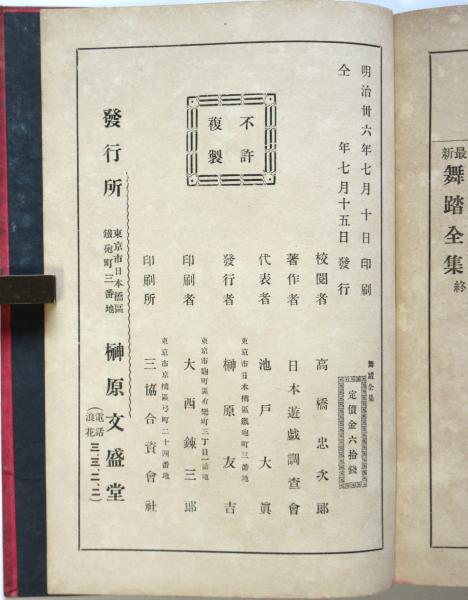 最新舞踏全集終
明治卅六年七月十日印刷
仝年七月十五日發行
不許
複製
舞踏全集
定價金六拾錢
校閲者 高橋忠次郎
著作者 日本遊戯調査會
代表者 池戸大眞
東京市日本橋區鐵砲町三番地
發行者 榊原友吉
東京市麹町區有樂町三丁目一番地
印刷者 大西錬三郎
東京市京橋區弓町二十四番地
印刷所 三協合資會社
發行所 東京市日本橋區鐵砲町三番地 榊原文盛堂
(電話浪花三、三二、二)